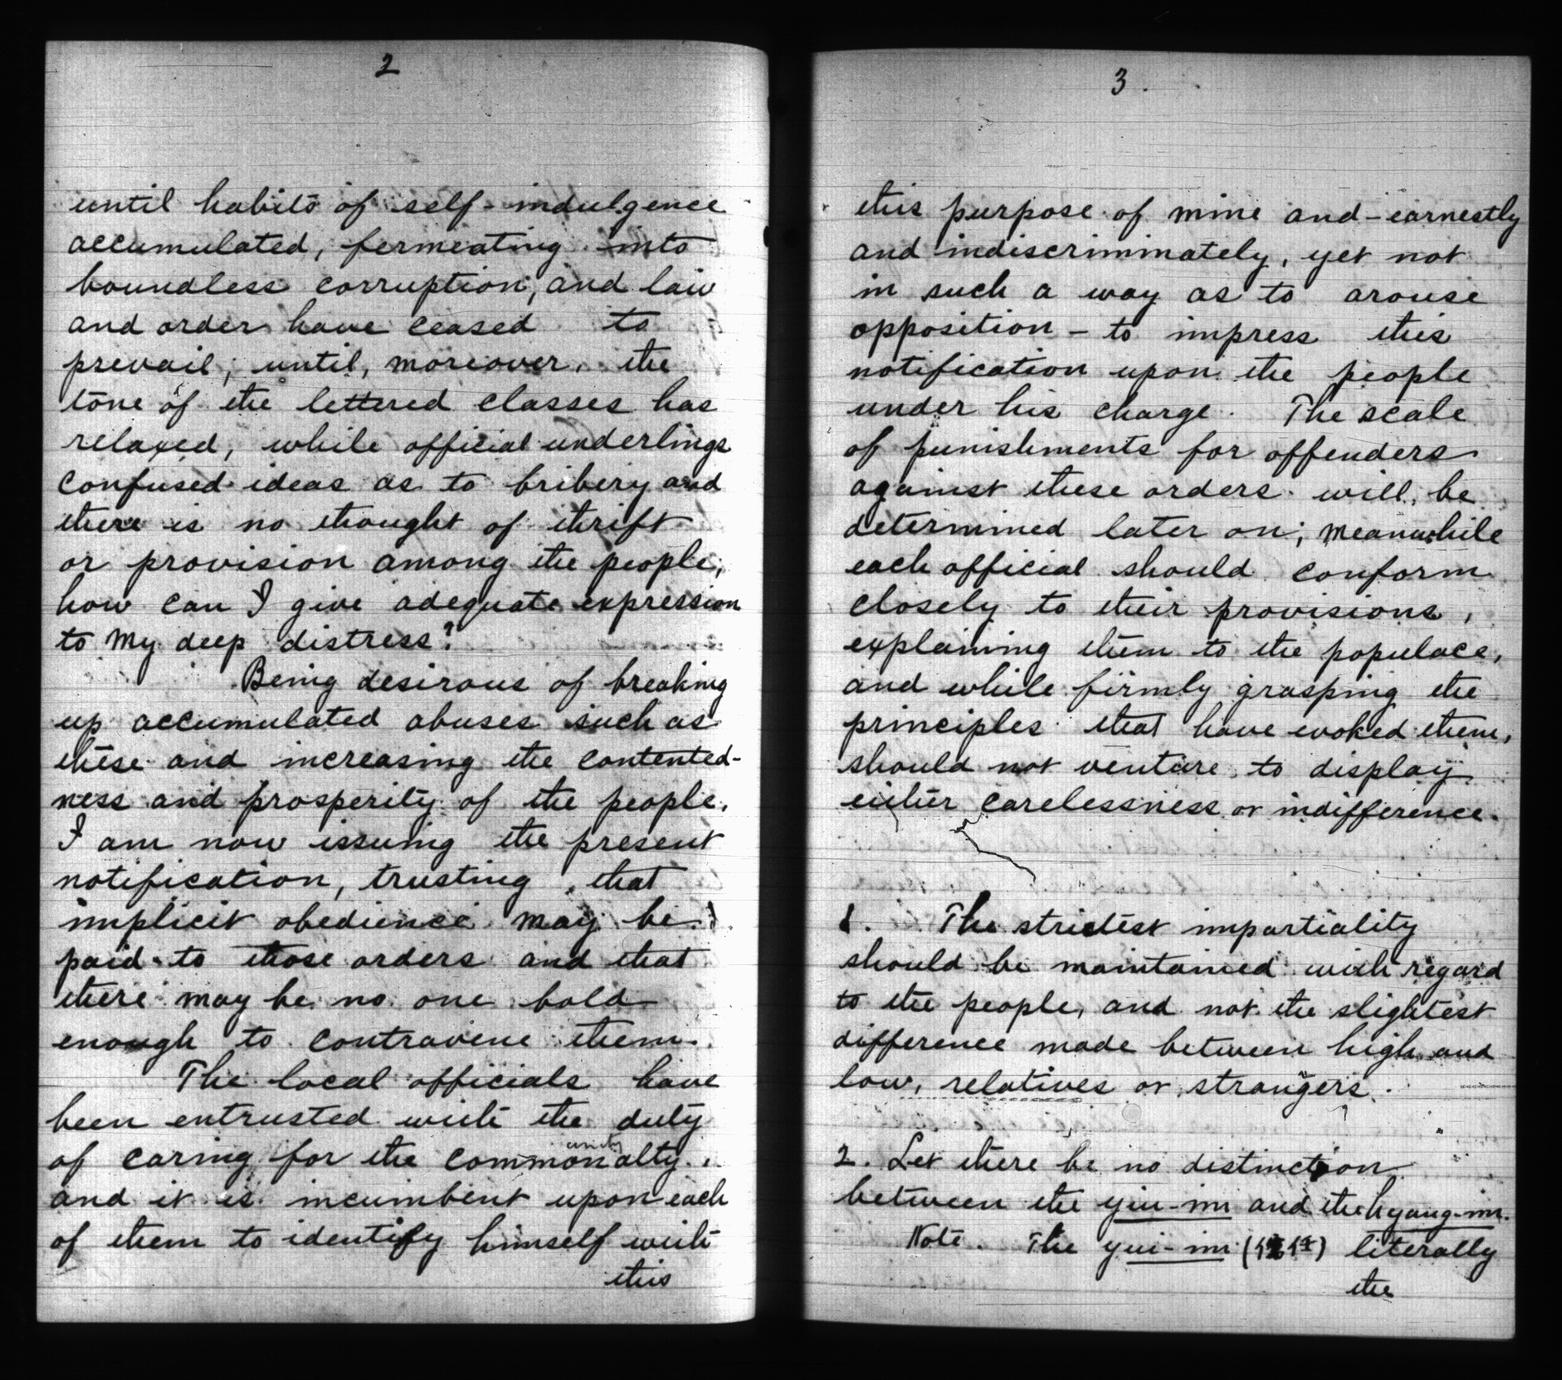 2
until habits of self-indulgence
accumulated, fermeating into
boundless corruption, and law
and order have ceased to
prevail; until, moreover, the
tone of the lettered classes has
relaxed, while official underlings
confused ideas as to bribery and
there is no thought of thrift
or provision among the people,
how can I give adequate expression
to my deep distress?
Being desirous of breaking
up accumulated abuses such as
these and increasing the contented-
ness and prosperity of the people,
I am now issuing the present
notification, trusting that
implicit obedience may be
paid to those orders and that
there may be no one bold
enough to contravene them.
The local officials have
been entrusted with the duty
unity
of caring for the commonalty,
and it is incumbent upon each
of them to identify himself with
this
3.
this purpose of mine and-earnestly
and indiscriminately, yet not
in such a way as to arouse
opposition - to impress this
notification upon the people
under his charge. The scale
of punishments for offenders
against these orders will be
determined later on; meanwhile
each official should conform
closely to their provisions,
explaining them to the populace,
and while firmly grasping the
principles that have evoked them,
should not venture to display
either carelessness or indifference.
1. The strictest impartiality
should be maintained with regard
to the people, and not the slightest
difference made between high and
low, relatives or strangers.
2. Let there be no distinction
between the yiu-im and the hyang-im.
Note. The yui-im () literally
the